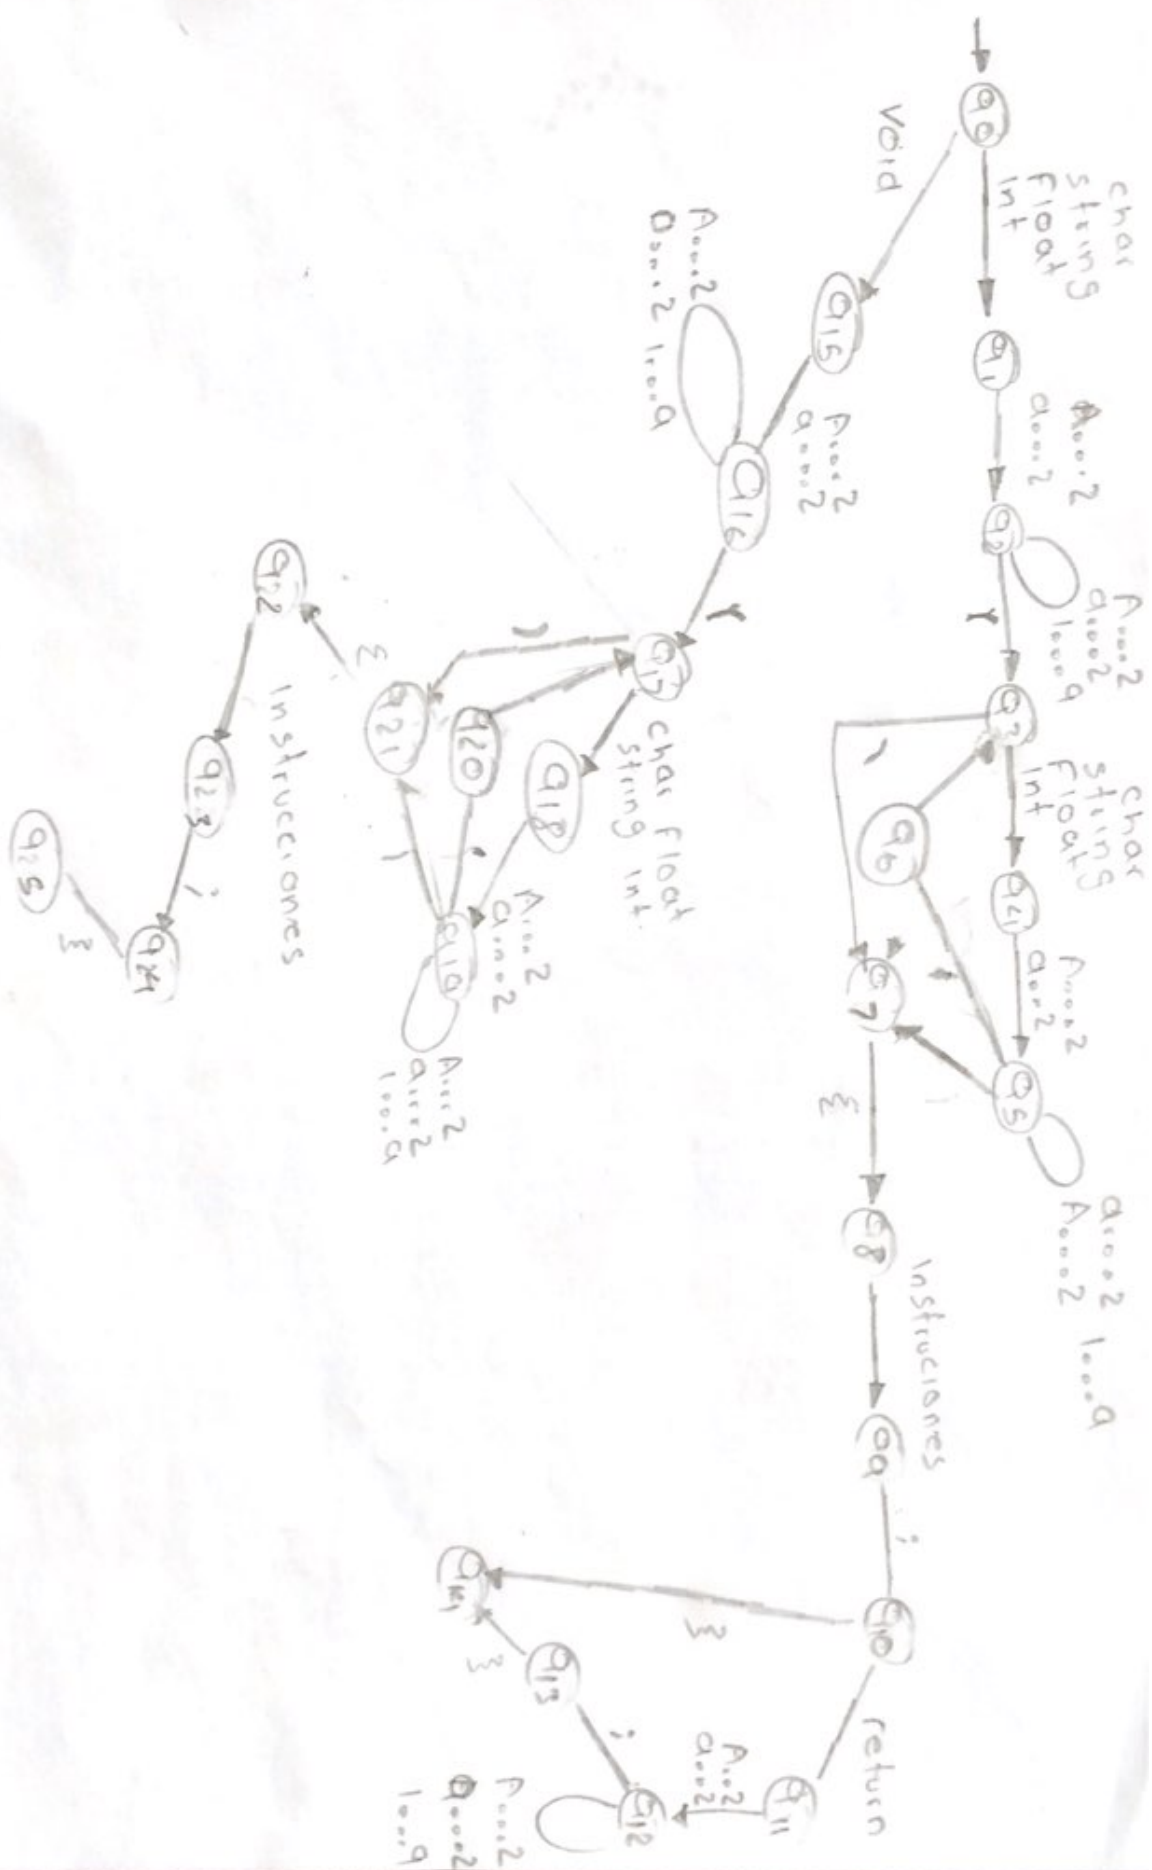 q0
char
string
Float
Int
q1
A....z
a....z
q2
A....z
a....z
1....9
(
q3
char
string
Float
Int
q4
A....z
a...z
q5
a....z 1....9
A....z
q6
,
)
q7
{
q8
Instruciones
q9
;
q10
return
q11
A...z
a...z
q12
A....z
a....z
1....9
;
q13
}
q14
}
void
q15
A....z
a....z
q16
A....z
a....z 1....9
(
q17
char Float
string Int.
q18
A....z
a....z
q19
A....z
a....z
1....9
,
q20
)
)
q21
{
q22
Instrucciones
q23
;
q24
}
q25